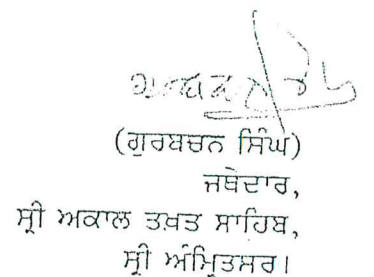 (ਗੁਰਬਚਨ ਸਿੰਘ)
ਜਥੇਦਾਰ,
ਸ੍ਰੀ ਅਕਾਲ ਤਖ਼ਤ ਸਾਹਿਬ,
ਸ੍ਰੀ ਅੰਮ੍ਰਿਤਸਰ।